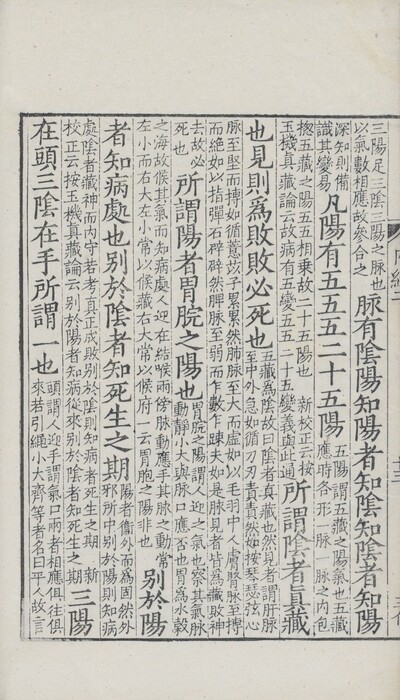 三陽足三陰三陽之脉也
以氣數相應故參合之
脉有陰陽知陽者知陰知陰者知陽
深知則備
識其變易
凡陽有五五五二十五陽
五陽謂五藏之陽氣也五藏
應時各形一脉一脉之内包
揔五藏之陽五五相乘故二十五陽也 新校正云按
玉機真藏論云故病有五變五五二十五變義與此通
所謂陰者真藏
也見則爲敗敗必死也
五藏爲陰故曰陰者真藏也然見者謂肝脉
至中外急如循刀刃責責然如按琴瑟弦心
脉至堅而搏如循薏苡子累累然肺脉至大而虛如以毛羽中人膚腎脉至搏
而絕如以指彈石辟辟然脾脉至弱而乍數乍踈夫如是脉見者皆爲藏敗神
去故必
死也
所謂陽者胃脘之陽也
胃脘之陽謂人迎之氣也察其氣脉
動靜小大與脉口應否也胃爲水穀
之海故候其氣而知病處人迎在結喉兩傍脉動應手其脉之動常
左小而右大左小常以候藏右大常以候府一云胃胞之陽非也
別於陽
者知病處也別於陰者知死生之期
陽者衛外而爲固然外
邪所中別於陽則知病
處陰者藏神而内守若考真正成敗別於陰則知病者死生之期 新
校正云按玉機真藏論云別於陽者知病從來別於陰者知死生之期
三陽
在頭三陰在手所謂一也
頭謂人迎手謂氣口兩者相應俱往俱
來若引繩小大齊等者名曰平人故言